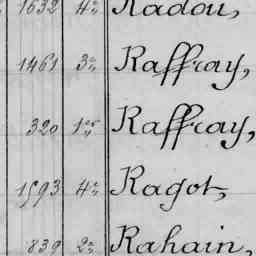 1632 4e Radou,
1461 3e Raffray,
320 1er Raffray,
1593 4e Ragot,
839 2e Rahain,